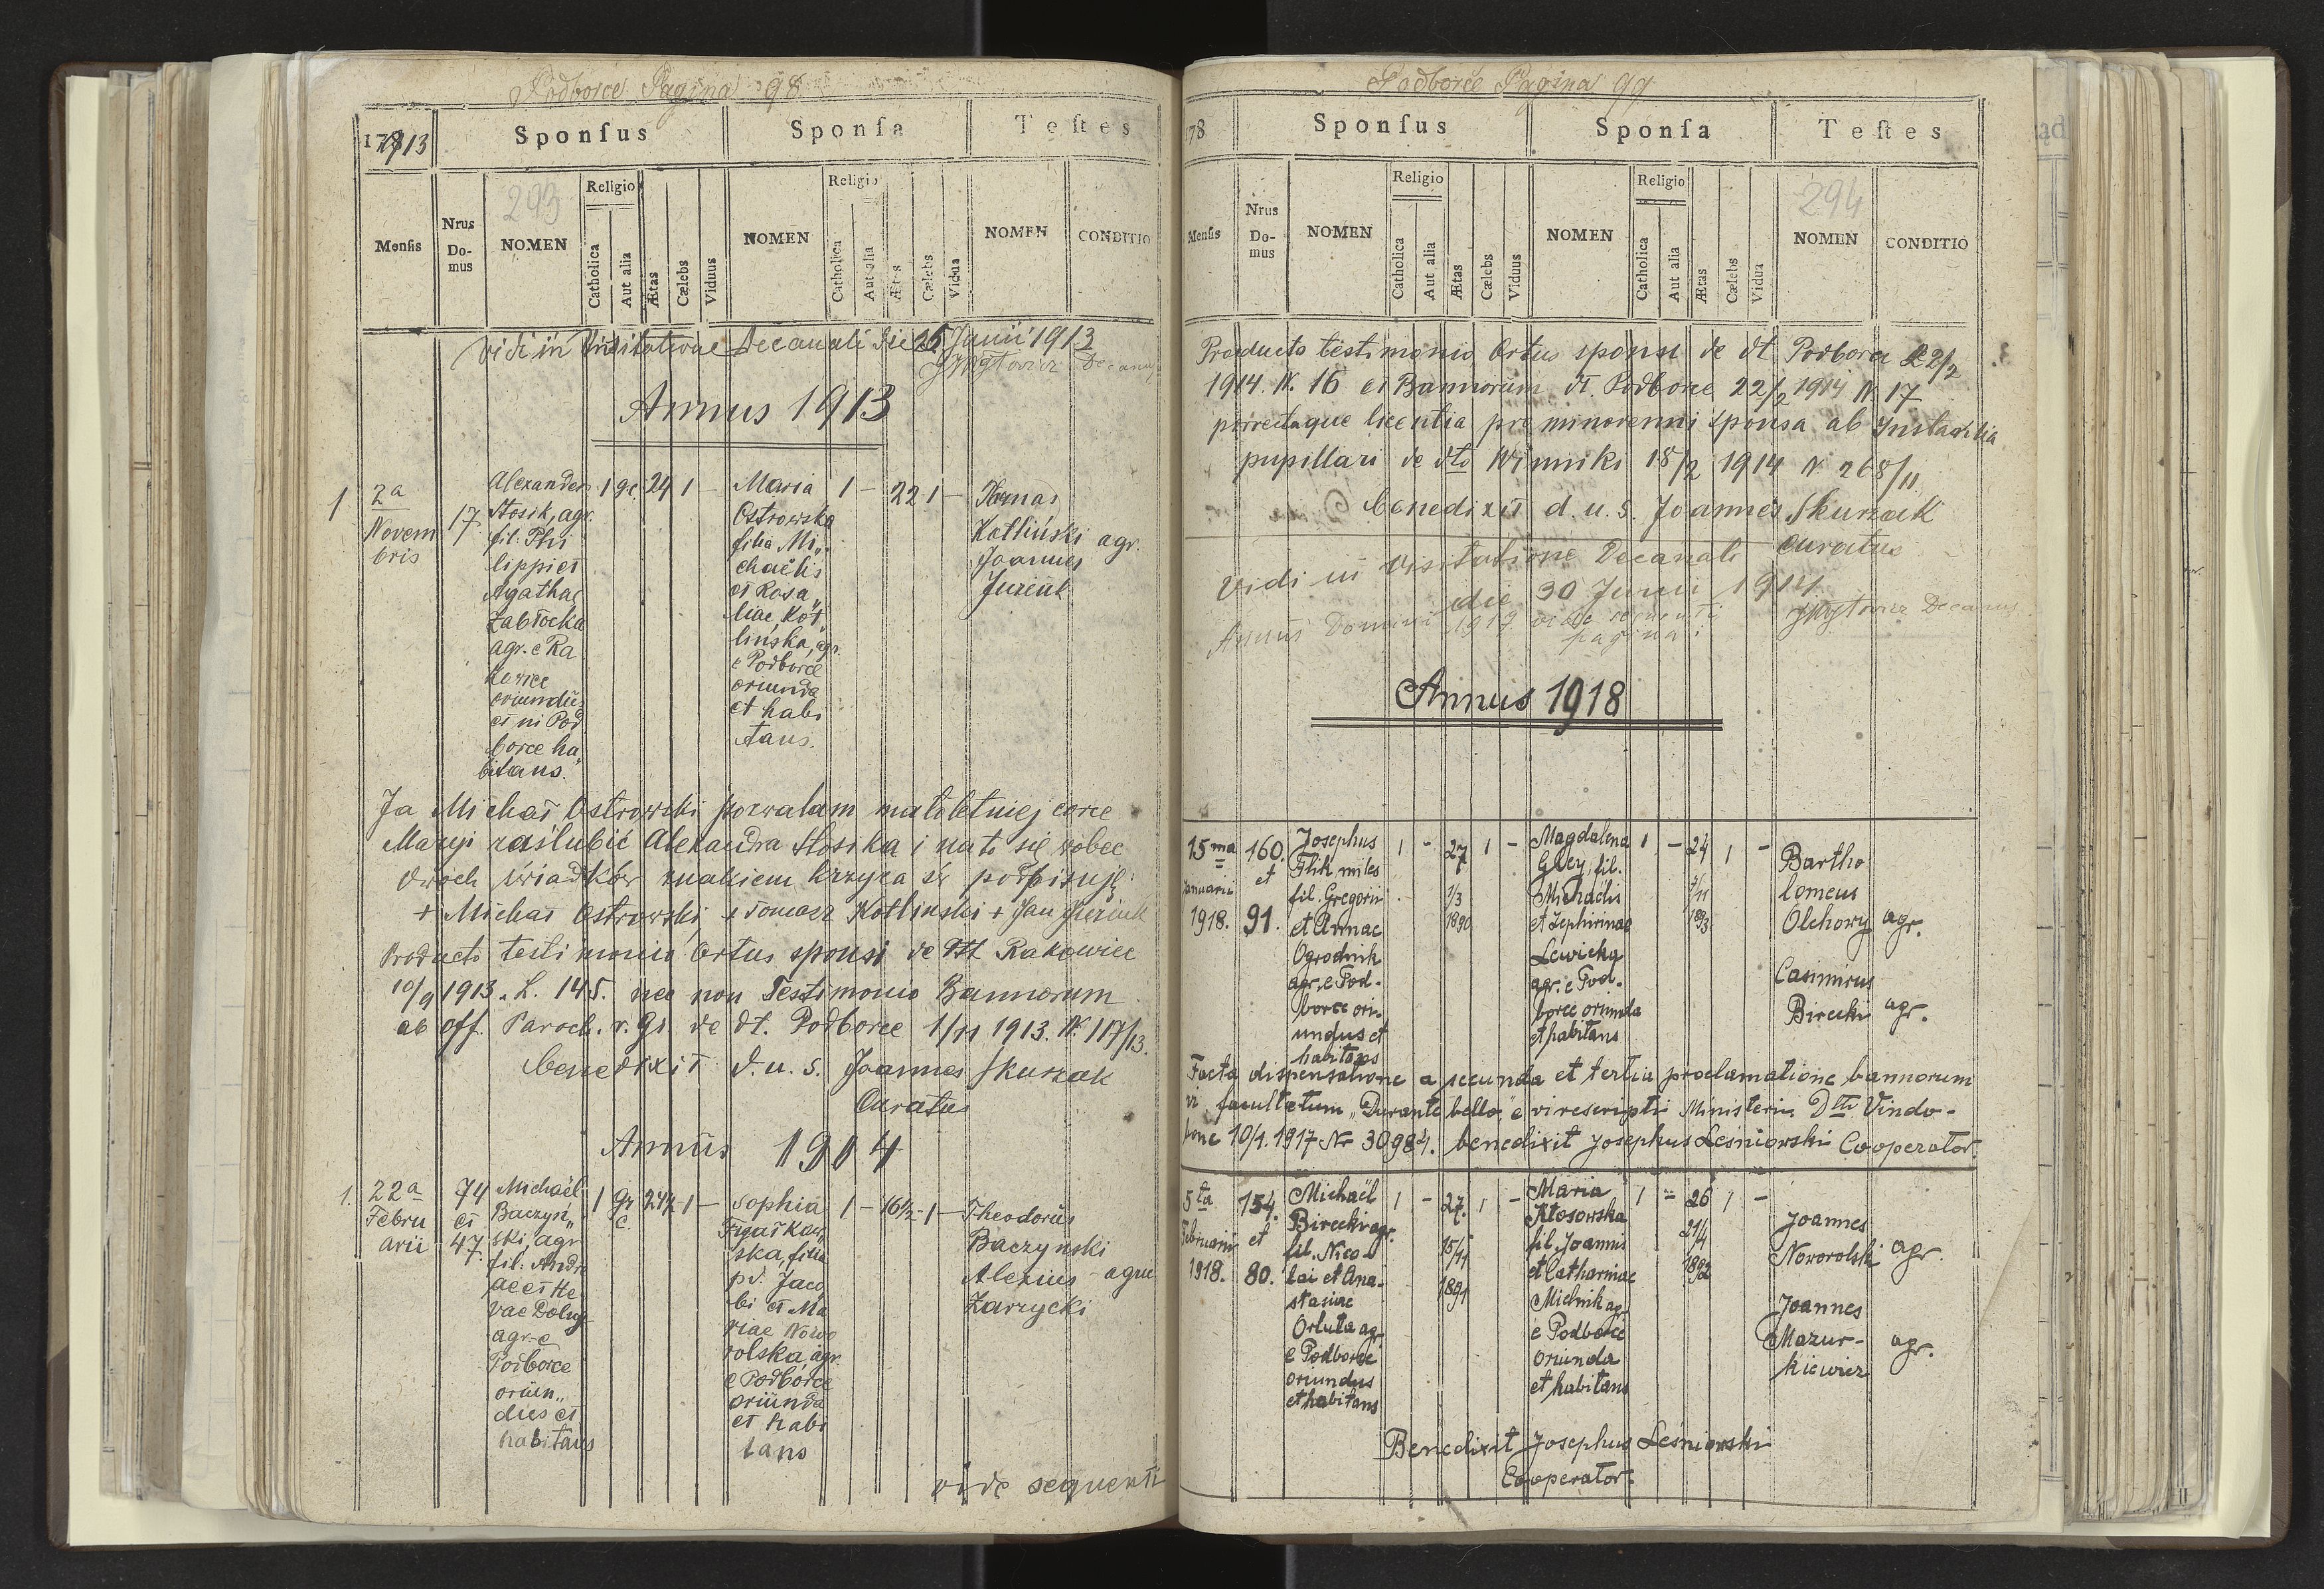 Podborce Pagina 98
1913
Sponsus
Sponsa
Testes
Mensis
Nrus Domus
293
NOMEN
Religio
Catholica
Aut alia
Ætas
Cælebs
Viduus
NOMEN
Religio
Catholica
Aut alia
Ætas
Cælebs
Vidua
NOMEN
CONDITIO
Vidi in Visitatione Decanali die 26 Junii 1913
Decanus
Annus 1913
1
2a
Novem
bris
17
Alexander
Stosik, agr.
fil: Phi
lippi et
Agathae
Zabłocka
agr. e Ra
kowiec
oriundus
et in Pod
borce ha„
bitans.
1 gr 24 1 –
Maria
Ostrowska
filia Mi„
chaëlis
et Rosa„
liae Kot„
lińska, agr.
e Podborce
oriunda
et habi
tans.
1 – 22 1 –
Thomas
Kotliński agr.
Joannes
Juzeuk
Ja Michał Ostrowski pozwalam małoletniej córce
Maryi zaślubić Alexandra Stosika i na to się wobec
dwóch świadków znakiem krzyża św podpisuję:
+ Michał Ostrowski + Tomasz Kotlinski + Jan
Producto testimonio Ortus sponsi de dt Rakowiec
10/9 1913. L. 145. nec non Testimonio Bannorum
ab off. Paroch. r. gr. de dt. Podborce 1/11 1913. N. 117/13.
benedixit d. u. s. Joannes Skurzak
Curatus
Annus 1914
1.
22a
Febru
arii
74
et
47
Michaël
Baczyń„
ski agr
fil: Andre
ae et He
vae Dolny
agr. e
Podborce
oriun„
dus et
habitans
1 gr c. 24½ 1 –
Sophia
Figaszkow
ska, filia
pd: Jaco
bi et Ma
riae Nowo
rolska, agr.
e Podborce
oriunda
et habi
tans
1 – 16½ – 1 –
Theodorus
Baczynski
Alexius – agric
Zarzycki
vide sequenti
Podborce Pagina 99
178
Sponsus
Sponsa
Testes
Mensis
Nrus Domus
NOMEN
Religio
Catholica
Aut alia
Ætas
Cælebs
Viduus
NOMEN
Religio
Catholica
Aut alia
Ætas
Cælebs
Vidua
294
NOMEN
CONDITIO
Producto testimonio Ortus sponsi de dt Podborce 22/2
1914. N. 16 et Bannorum dt. Podborce 22/2 1914 N. 17
porrectaque licentia pro minorenni sponsa ab Instantia
pupillari de dto Winniki 18/2 1914 N 268/11
benedixit d. u. s. Joannes Skurzak
Curatus
Vidi in visitatione Decanali
die 30 Junii 1914.
Decanus
Annus Domini 1917 vide sequenti
pagina:
Annus 1918
15ma
Januarii
1918.
160.
et
91.
Josephus
Flik, miles
fil. Gregorii
et Annae
Ogrodnik
agr. e Pod-
borce ori
undus et
habitans
1 – 27 1 –
1/3
1890
Magdalena
Gley, fil.
Michaelis
et Zephirinae
Lewicka
agr. e Pod-
borce oriunda
et habitans
1 – 24 1 –
1893
Bartho
lomeus
Olchowy agr.
Casimirus
Birecki agr.
Facta dispensatione a secunda et tertia proclamatione bannorum
vi facultatum „Durante bello” e vi rescripti Ministerii Dtto Vindo-
bonae 10/1. 1917 Nr 30984. benedixit Josephus Leśniowski Cooperator.
5ta
Februarii
1918.
154.
et
80.
Michaël
Birecki agr.
fil. Nico-
lai et Ana-
stasiae
Orłuta agr.
e Podborce
oriundus
et habitans
1 – 27. 1 –
15/11
1891
Maria
Kłosowska
fil. Joannis
et Catharinae
Mielnik agr.
e Podborce
oriunda
et habitans
1 – 26 1 –
21/4
1892
Joannes
Noworolski agr.
Joannes
Mazur- agr.
kiewicz
Benedixit Josephus Leśniowski
Cooperator.